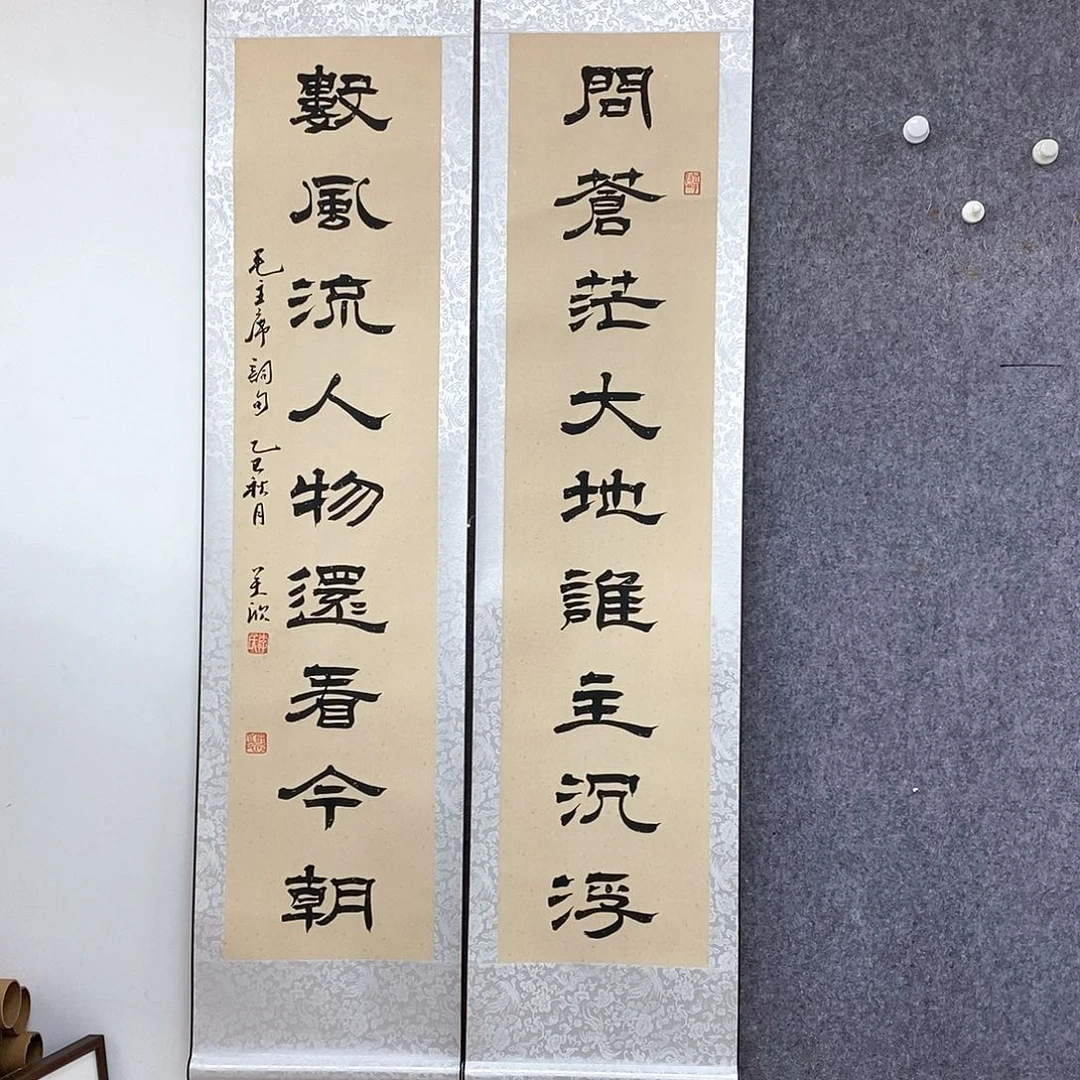 問蒼茫大地誰主沉浮
數風流人物還看今朝
毛主席詞句 乙巳秋月 美欣